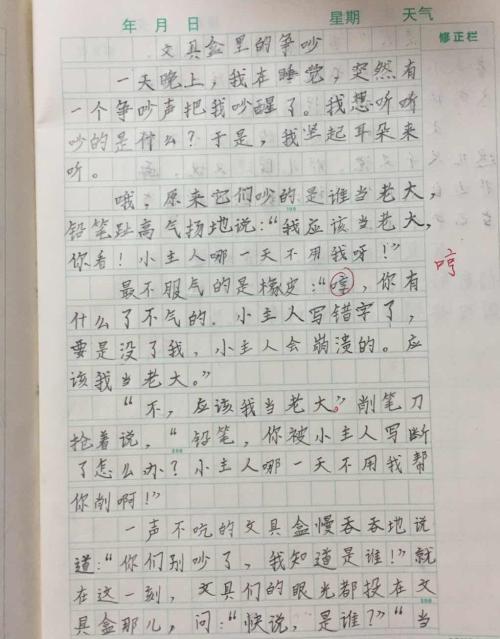 年 月 日 星期 天气
修正栏
文具盒里的争吵
一天晚上，我在睡觉，突然有
一个争吵声把我吵醒了。我想听听
吵的是什么？于是，我坚起耳朵来
听。
哦，原来它们吵的是谁当老大，
铅笔趾高气扬地说：“我应该当老大，
你看！小主人哪一天不用我呀！”
哼
最不服气的是橡皮：“哼，你有
什么了不气的．小主人写错字了，
要是没了我，小主人会崩溃的。应
该我当老大。”
“不，应该我当老大。”削笔刀
抢着说，“铅笔，你被小主人写断
了怎么办？小主人哪一天不用我帮
你削啊！”
一声不吭的文具盒慢吞吞地说
道：“你们别吵了，我知道是谁！”就
在这一刻，文具们的眼光都投在文
具盒那儿，问：“快说，是谁？”“当